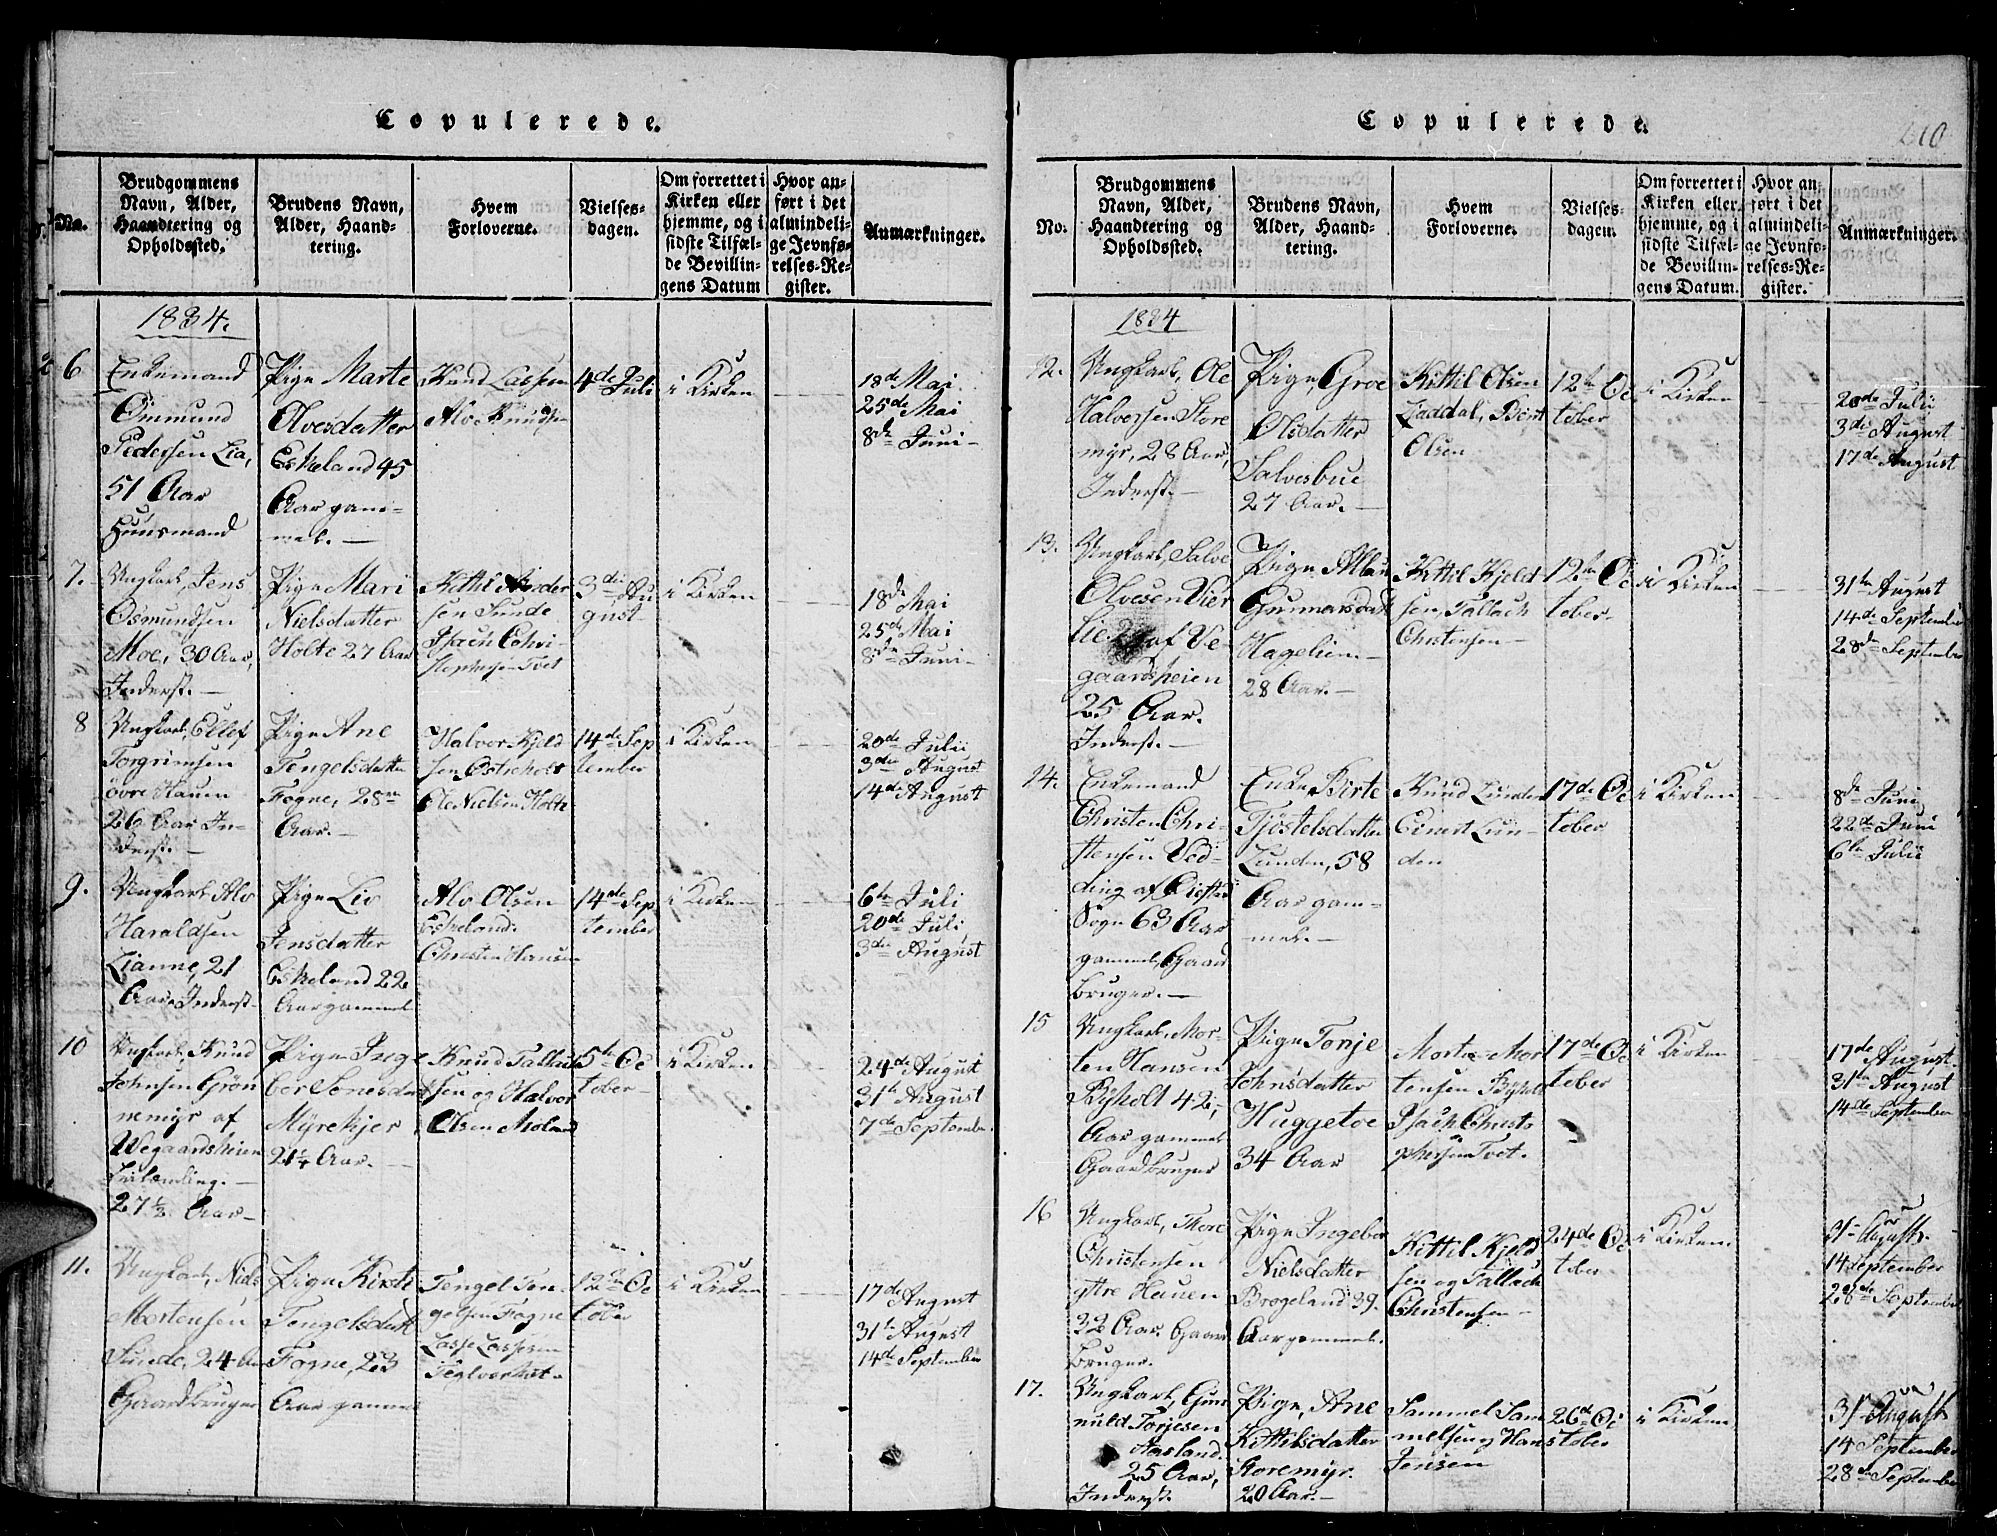 Copulerede.
No.
Brudgommens
Navn, Alder,
Haandtering og
Opholdssted.
Brudens Navn,
Alder, Haand-
tering.
Hvem
Forloverne.
Vielses-
dagen.
Om forrettet i
Kirken eller
hjemme, og i
sidste Tilfæl-
de Bevillin-
gens Datum
Hvor an-
ført i det
almindeli-
ge Jevnfø-
relses-Re-
gister.
Anmærkninger.
1834.
6
Enkemand
Osmund
Pedersen Lia,
51 Aar
Huusmand
Pige Marte
Olvesdatter
Eskeland 45
Aar gam-
mel. —
Knud Lassen
Alve Knudsen
4de Juli
i Kirken
18de Mai
25de Mai
8de Juni-
7.
Ungkarl, Jens
Osmundsen
Moe, 30 Aar,
Inderst. —
Pige Mari
Nielsdatter
Holte 27 Aar
Kittil Ander
sen Sunde
Isach Chri-
stophersen Tvet
3die Au
gust
i Kirken
18de Mai
25de Mai
8de Juni-
8
Ungkarl, Ellef
Torgrimsen
øvre Hauen
26 Aar In-
derst. —
Pige Ane
Tengelsdatter
Fogne, 28
Aar. —
Halvor Kjeld
sen Østreholt
Ole Nielsen Holte
14de Sep
tember
i Kirken
20de Julii
3die August
14de August
9.
Ungkarl Alv
Haraldsen
Lianne, 21
Aar, Inderst-
Pige Liv
Jensdatter
Eskeland 22
Aar gammel
Alv Olsen
Eskeland.
Christen Hansen
14de Sep
tember
i Kirken
6te Juli
20de Juli
3die August
10
Ungkarl, Knud
Johnsen Grøn
nemyr af
Wegaardsheien
27½ Aar—
Pige Inge
ber Jensdat
Myrekjer
21¼ Aar. —
Knud Tallach
sen og Halvor
Olsen Moland
5te Oc
tober
i Kirken
24de August
31te August
7de Septembr.
11.
Ungkarl, Niels
Mortensen
Sunde, 24 Aar
Gaardbruger
Pige Kirsti
Tengelsdatt
Fogne, 23
Aar gammel
Tengel Ten-
gelsen Fogne
Lasse Lassesen
12te Oc
tober
i Kirken
17de August
31te August
14de September
Copulerede.
210
No.
Brudgommens
Navn, Alder,
Haandtering og
Opholdssted.
Brudens Navn,
Alder, Haand-
tering.
Hvem
Forloverne.
Vielses-
dagen.
Om forrettet i
Kirken eller
hjemme, og i
sidste Tilfæl-
de Bevillin-
gens Datum.
Hvor an-
ført i det
almindeli-
ge Jevnfø-
relses-Re-
gister.
Anmærkninger.
1834
12.
Ungkarl, Ole
Halvorsen Store
myr, 28 Aar,
Inderst. —
Pige, Groe
Olsdatter
Salvesbue
27 Aar. —
Kittil Olsen
Laddal, Bent
Olsen
12te Oc
tober
i Kirken
20de Julii
3die August
17de August
13.
Ungkarl, Salve
Olvesen Vier
lie af Ve-
gaardsheien
25 Aar.
Inderst. —
Pige
Gunnarsdatt
Hagelien
28 Aar. —
Kittil Kjeld
sen, Tallach
Christensen—
12te Oc
tober.
i Kirken
31te August
14de September
28de September
14.
Enkemand
Christen Chri-
stensen Ved-
ding af Gjerstad
Sogn 63 Aar
gammel, Gaard
bruger. —
Enke Birte
Tjøstelsdatter
Lunden, 58
Aar gam-
mel. —
Knud Lunden
Einert Lun-
den
17de Oc
tober
i Kirken
8de Juni
22de Juni
6te Julii
15
Ungkarl, Mor-
ten Hansen
Byholt 42,
Aar gammel
Gaardbruger
Pige Tonje
Johnsdatter
Huggetoe
34 Aar
Morten Mor
tensen Byholt
Isach Christo
phersen Tvet.
17de Oc
tober
i Kirken
17de August.
31te August
14de September
16
Ungkarl, Thore
Christensen
yttre Hauen
32 Aar. Gaard
bruger.
Pige Ingebor
Nielsdatter
Brøgeland 39.
Aar gammel.
Kittil Kjeld
sen og Tallach
Christensen—
24de Oc
tober
i Kirken.
31- August.
14 September
28de September
17.
Ungkarl, Gun
nuld Torjesen
Aasland.
25 Aar,
Inderst.
Pige, Ane
Kittilsdatter
Storemyr.
20 Aar. —
Sammel Sam
melsen og Hans
Jensen
26de Oc
tober
i Kirken
31- August
14 September
28de September